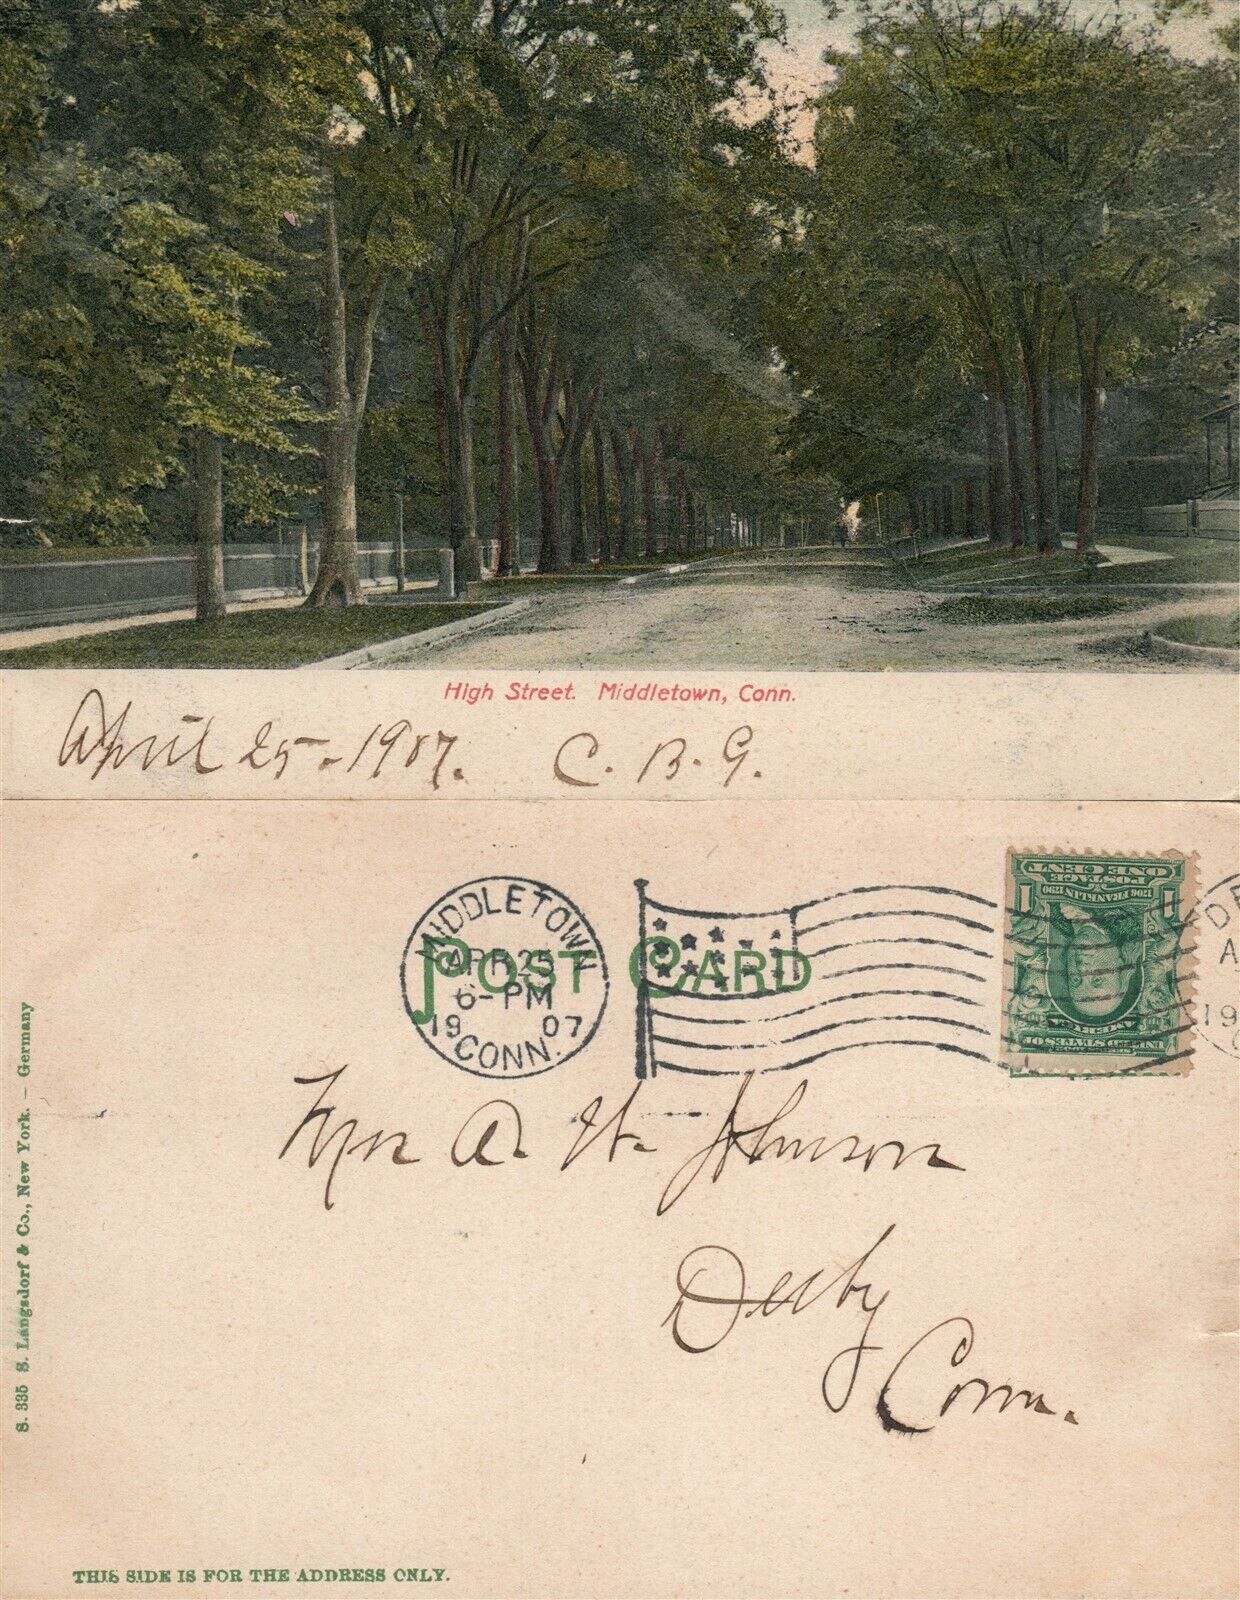 High Street. Middletown, Conn.
April 25-1907. C. B. G.
MIDDLETOWN
APR 25
6-PM
19 07
CONN.
POST CARD
ONE CENT
POSTAGE
1706 FRANKLIN 1790
1 1
AMERICA
UNITED STATES OF
DE
A
19
S. 335 S. Langsdorf & Co., New York. - Germany
A. W. Johnson
Derby
Conn.
THIS SIDE IS FOR THE ADDRESS ONLY.